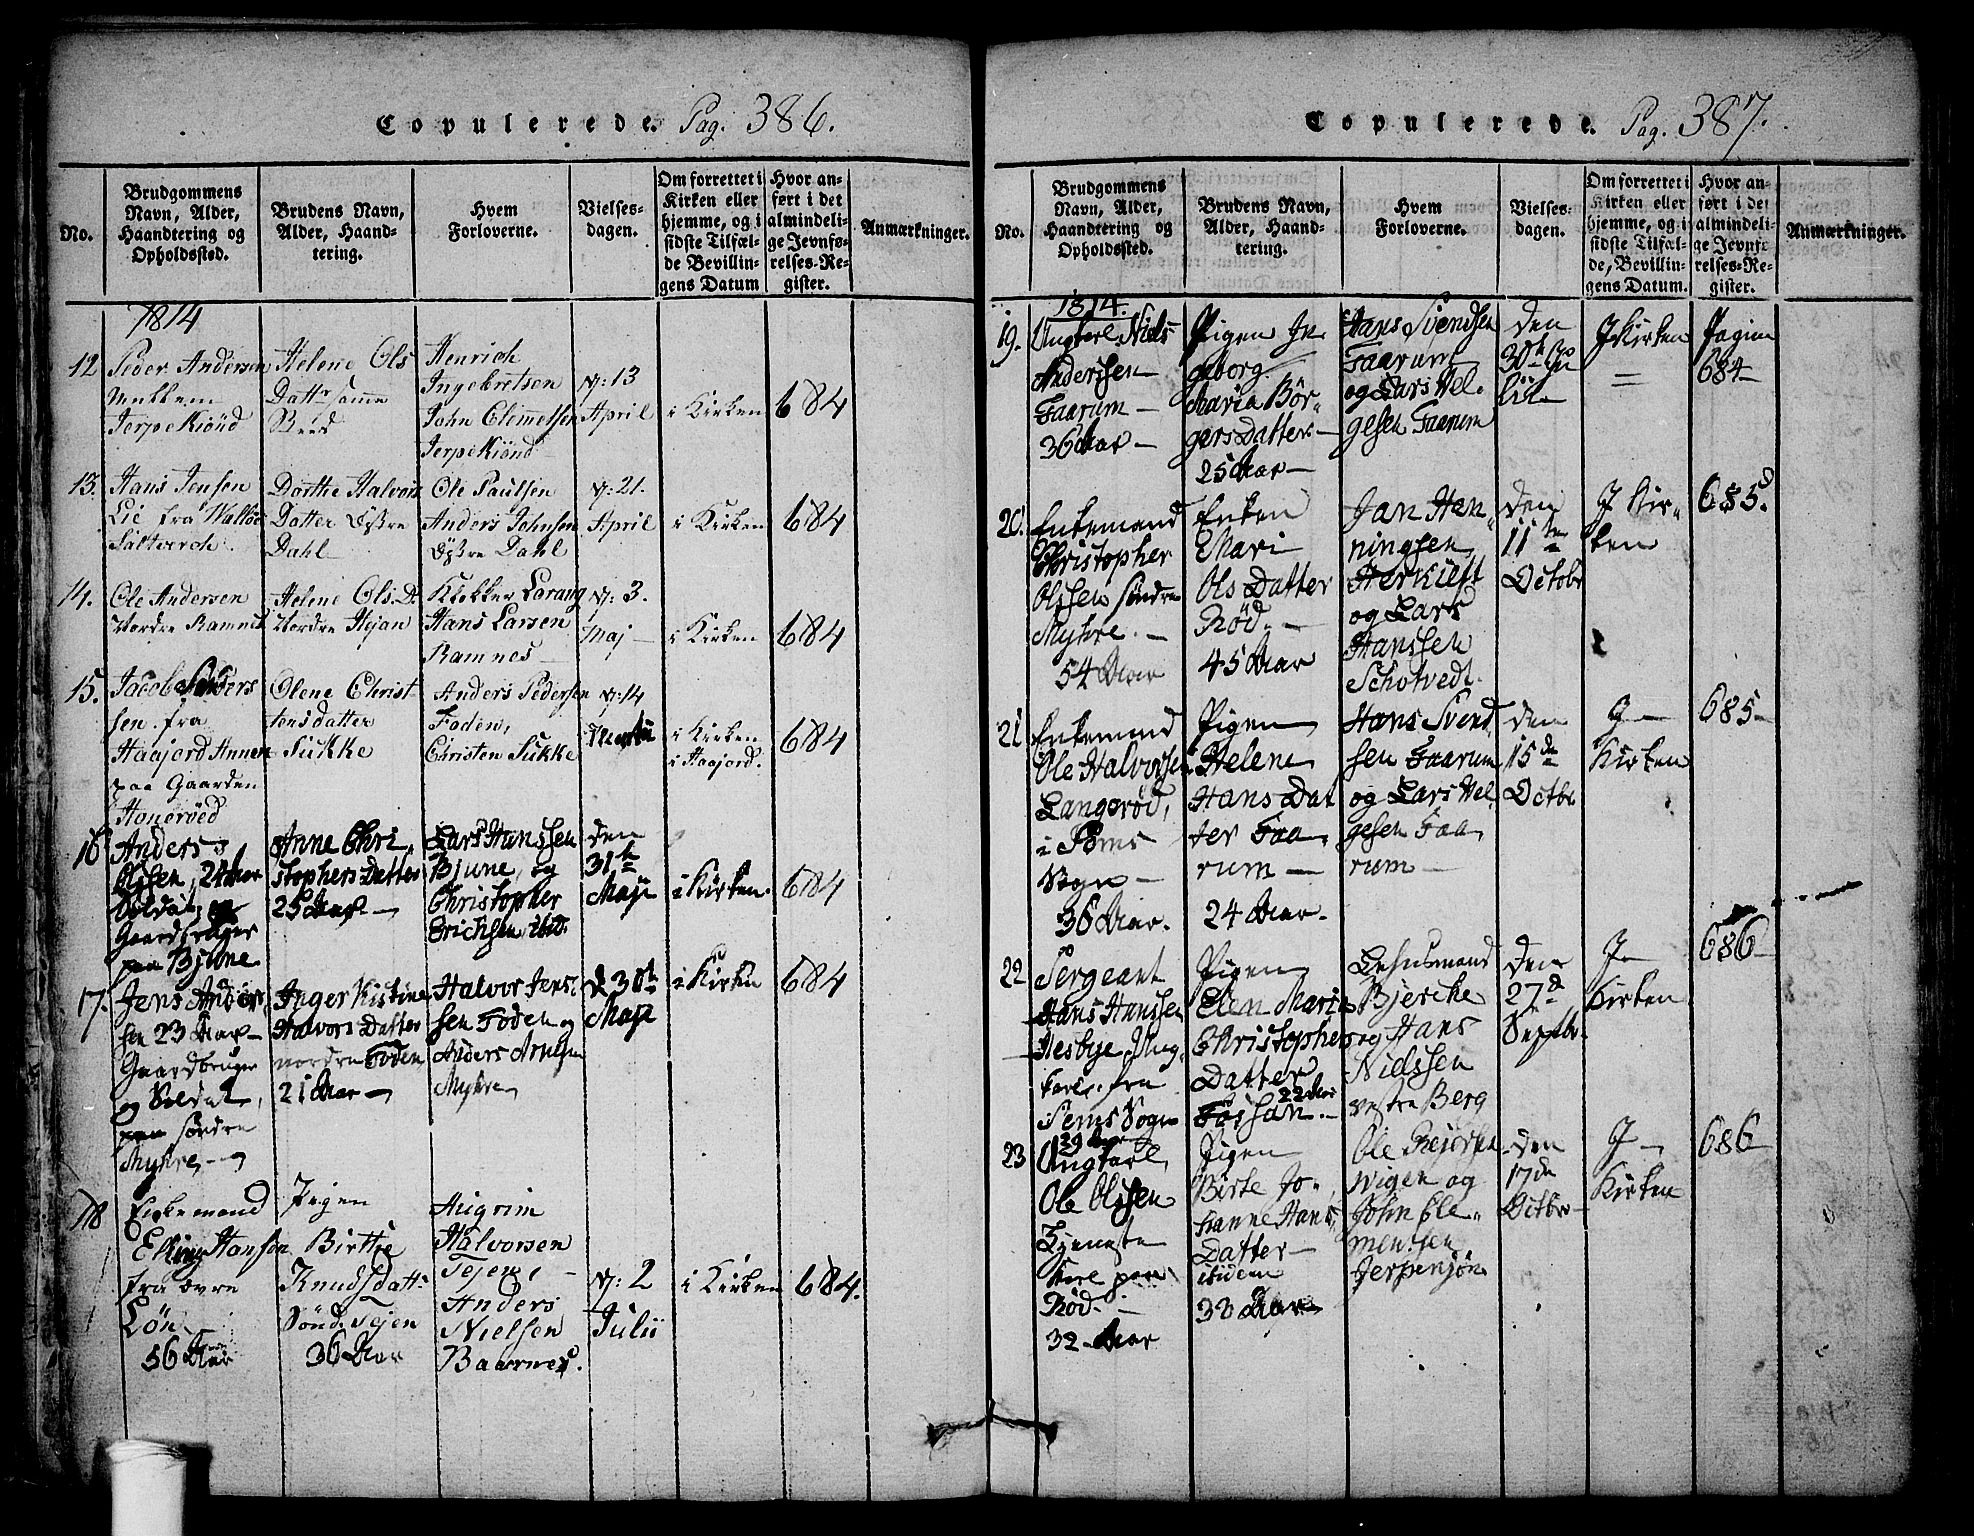 Copulerede. Pag. 386.
No.
Brudgommens
Navn, Alder,
Haandtering og
Opholdssted.
Brudens Navn,
Alder, Haand-
tering.
Hvem
Forloverne.
Vielses-
dagen.
Om forrettet i
Kirken eller
hjemme, og i
sidste Tilfæl-
de Bevillin-
gens Datum
Hvor an-
ført i det
almindeli-
ge Jevnfø-
relses-Re-
gister.
Anmærkninger.
1814
12
Peder Andersen
Jerpekiönd
Helene Ols
Dattr samme
Henrich
Ingebretsen
John Clemetsen
Jerpekiönd
d: 13
April
i Kirken
684
13.
Hans Jensen
Lie fra Valløe
Saltverch.
Dorthe Halvors
Datter Østre
Dahl
Ole Paulsen
Anders Johnsen
Østre Dahl
d: 21.
April
i Kirken
684
14.
Ole Andersen
Nordre Ramnes
Helene Ols. D.
Nordre Hejan
Klokker Larang
Hans Larsen
Ramnes
d: 3.
Maj
i Kirken
684
15.
Jacob
sen fra
Haajord Annex
paa Gaarden
Honeröed
Olene Christ
tensdatter
Sukke
Anders Pedersen
Foden,
Christen Sukke
d: 14
i Kirken
i Haajord.
684
16
Anders
Olssen, 24 Aar
Soldat,
Gaardbruger
paa Bjune
Anne Chri
stophers Datter
25 Aar
Lars Hanssen
Bjune, og
Christopher
Erichsen ibid.
den
31te
Maji
i Kirken.
684
17.
Jens Anders
sen 23 Aar
Gaardbruger
og Soldat,
paa søndre
Myhre,
Inger Kistine
Halvors Datter
nordre Foden
21 Aar
Halvor Jens-
sen Foden og
Anders Arnesen
Myhre
d 30te
Maji
i Kirken
684
18
Enkemand
Elling Hansen
fra øvre
Lön
56 Aar
Pigen
Birthe
Knudsdatt:
Sönd. Tejen
36 Aar
Halgrim
Halvorsen
Tejen,
Anders
Nielsen
Baarnes.
d: 2
Julii
i Kirken
684.
Copulerede. Pag. 387.
No.
Brudgommens
Navn, Alder,
Haandtering og
Opholdssted.
Brudens Navn,
Alder, Haand-
tering.
Hvem
Forloverne.
Vielses-
dagen.
Om forrettet i
Kirken eller
hjemme, og i
sidste Tilfæl-
de, Bevillin-
gens Datum.
Hvor an-
ført i det
almindeli-
ge Jevnfø-
relses-Re-
gister.
Anmærkninger.
1814.
19.
Ungkarl Niels
Anderssen
Faarum
36 Aar
Pigen In
geborg
Maria Bör-
gers Datter
25 Aar
Hans Svendsen
Faarum
og Lars Hel-
gesen Faarum
den
30te
I Kirken
Pagina
684
20.
Enkemand
Christopher
Olssen söndre
Myhre.
54 Aar
Enken
Mari
Ols Datter
Röd.
45 Aar
Jan Hen-
ningsen
og Lars
Hanssen
Schotvedt.
den
11te
Octobr
I Kir-
ken
685.
21
Enkemand
Ole Halvorsen
Langeröd,
i Sems
Sogn
36 Aar.
Pigen
Helene
Hans Dat
ter Faa
rum
24 Aar.
Hans Svend
sen Faarum
og Lars Hel
gesen Faa
rum
den
15de
Octbr
I
Kirken
685
22
Sergeant
Hans Hanssen
Nesbye, Ung
karl, fra
Sems Sogn
29 Aar
Pigen
Elen Marie
Christophers
Datter
Fossan. 22 Aar
Lehnsmand
Bjercke
og Hans
Nielssen
vestre Berg
den
27de
Septbr.
I
Kirken
686
23
Ungkarl,
Ole Olssen
Tjeneste
Karl paa
Röd.
32 Aar
Pigen
Birte Jo
hanne Hans
Datter
ibidem
30 Aar
Ole
wigen og
John Cle-
mensen
Jerpenjön
den
17de
Octbr
I
Kirken
686